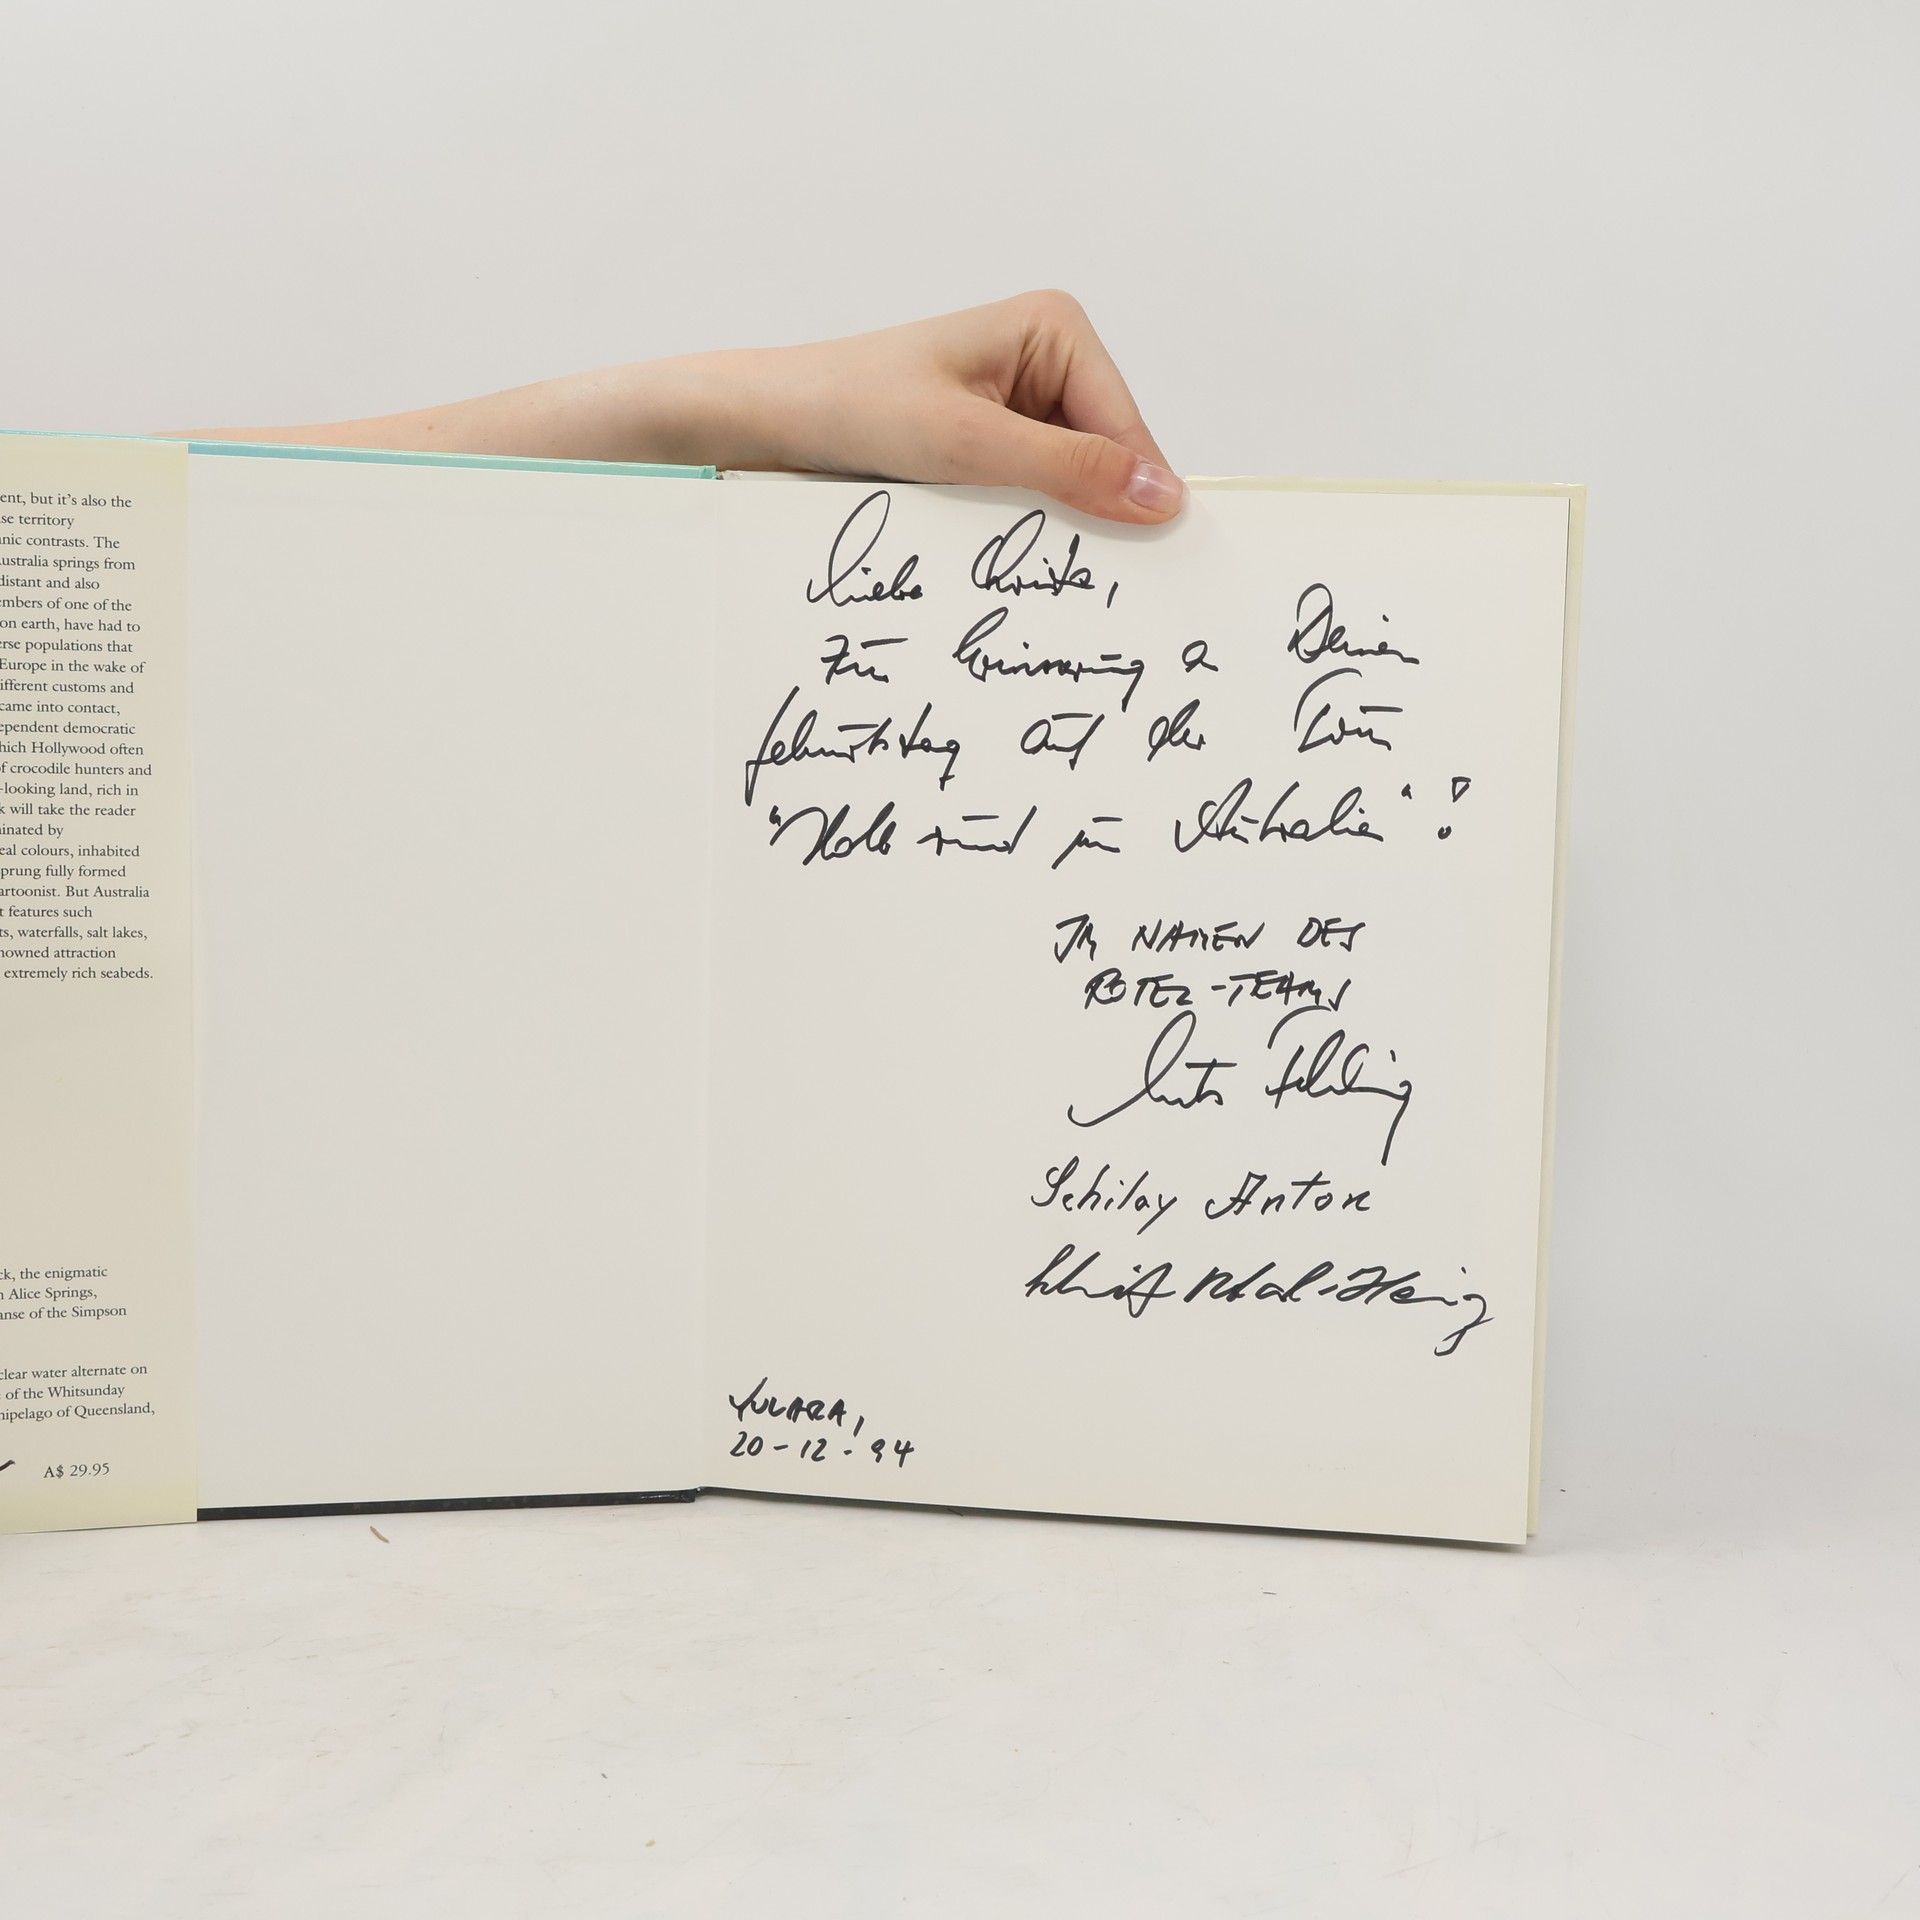 ent, but it's also the
se territory
nic contrasts. The
ustralia springs from
distant and also
embers of one of the
on earth, have had to
erse populations that
Europe in the wake of
ifferent customs and
came into contact,
ependent democratic
hich Hollywood often
f crocodile hunters and
-looking land, rich in
k will take the reader
inated by
eal colours, inhabited
prung fully formed
artoonist. But Australia
t features such
ts, waterfalls, salt lakes,
nowned attraction
extremely rich seabeds.
ck, the enigmatic
n Alice Springs,
anse of the Simpson
clear water alternate on
of the Whitsunday
hipelago of Queensland,
A$ 29.95
Liebe Christa,
zur Erinnerung an Deinen
Geburtstag auf der Tour
"Halb rund um Australien"!
IM NAMEN DES
ROTEL-TEAMS
Schilay Anton
YULARA,
20-12-94